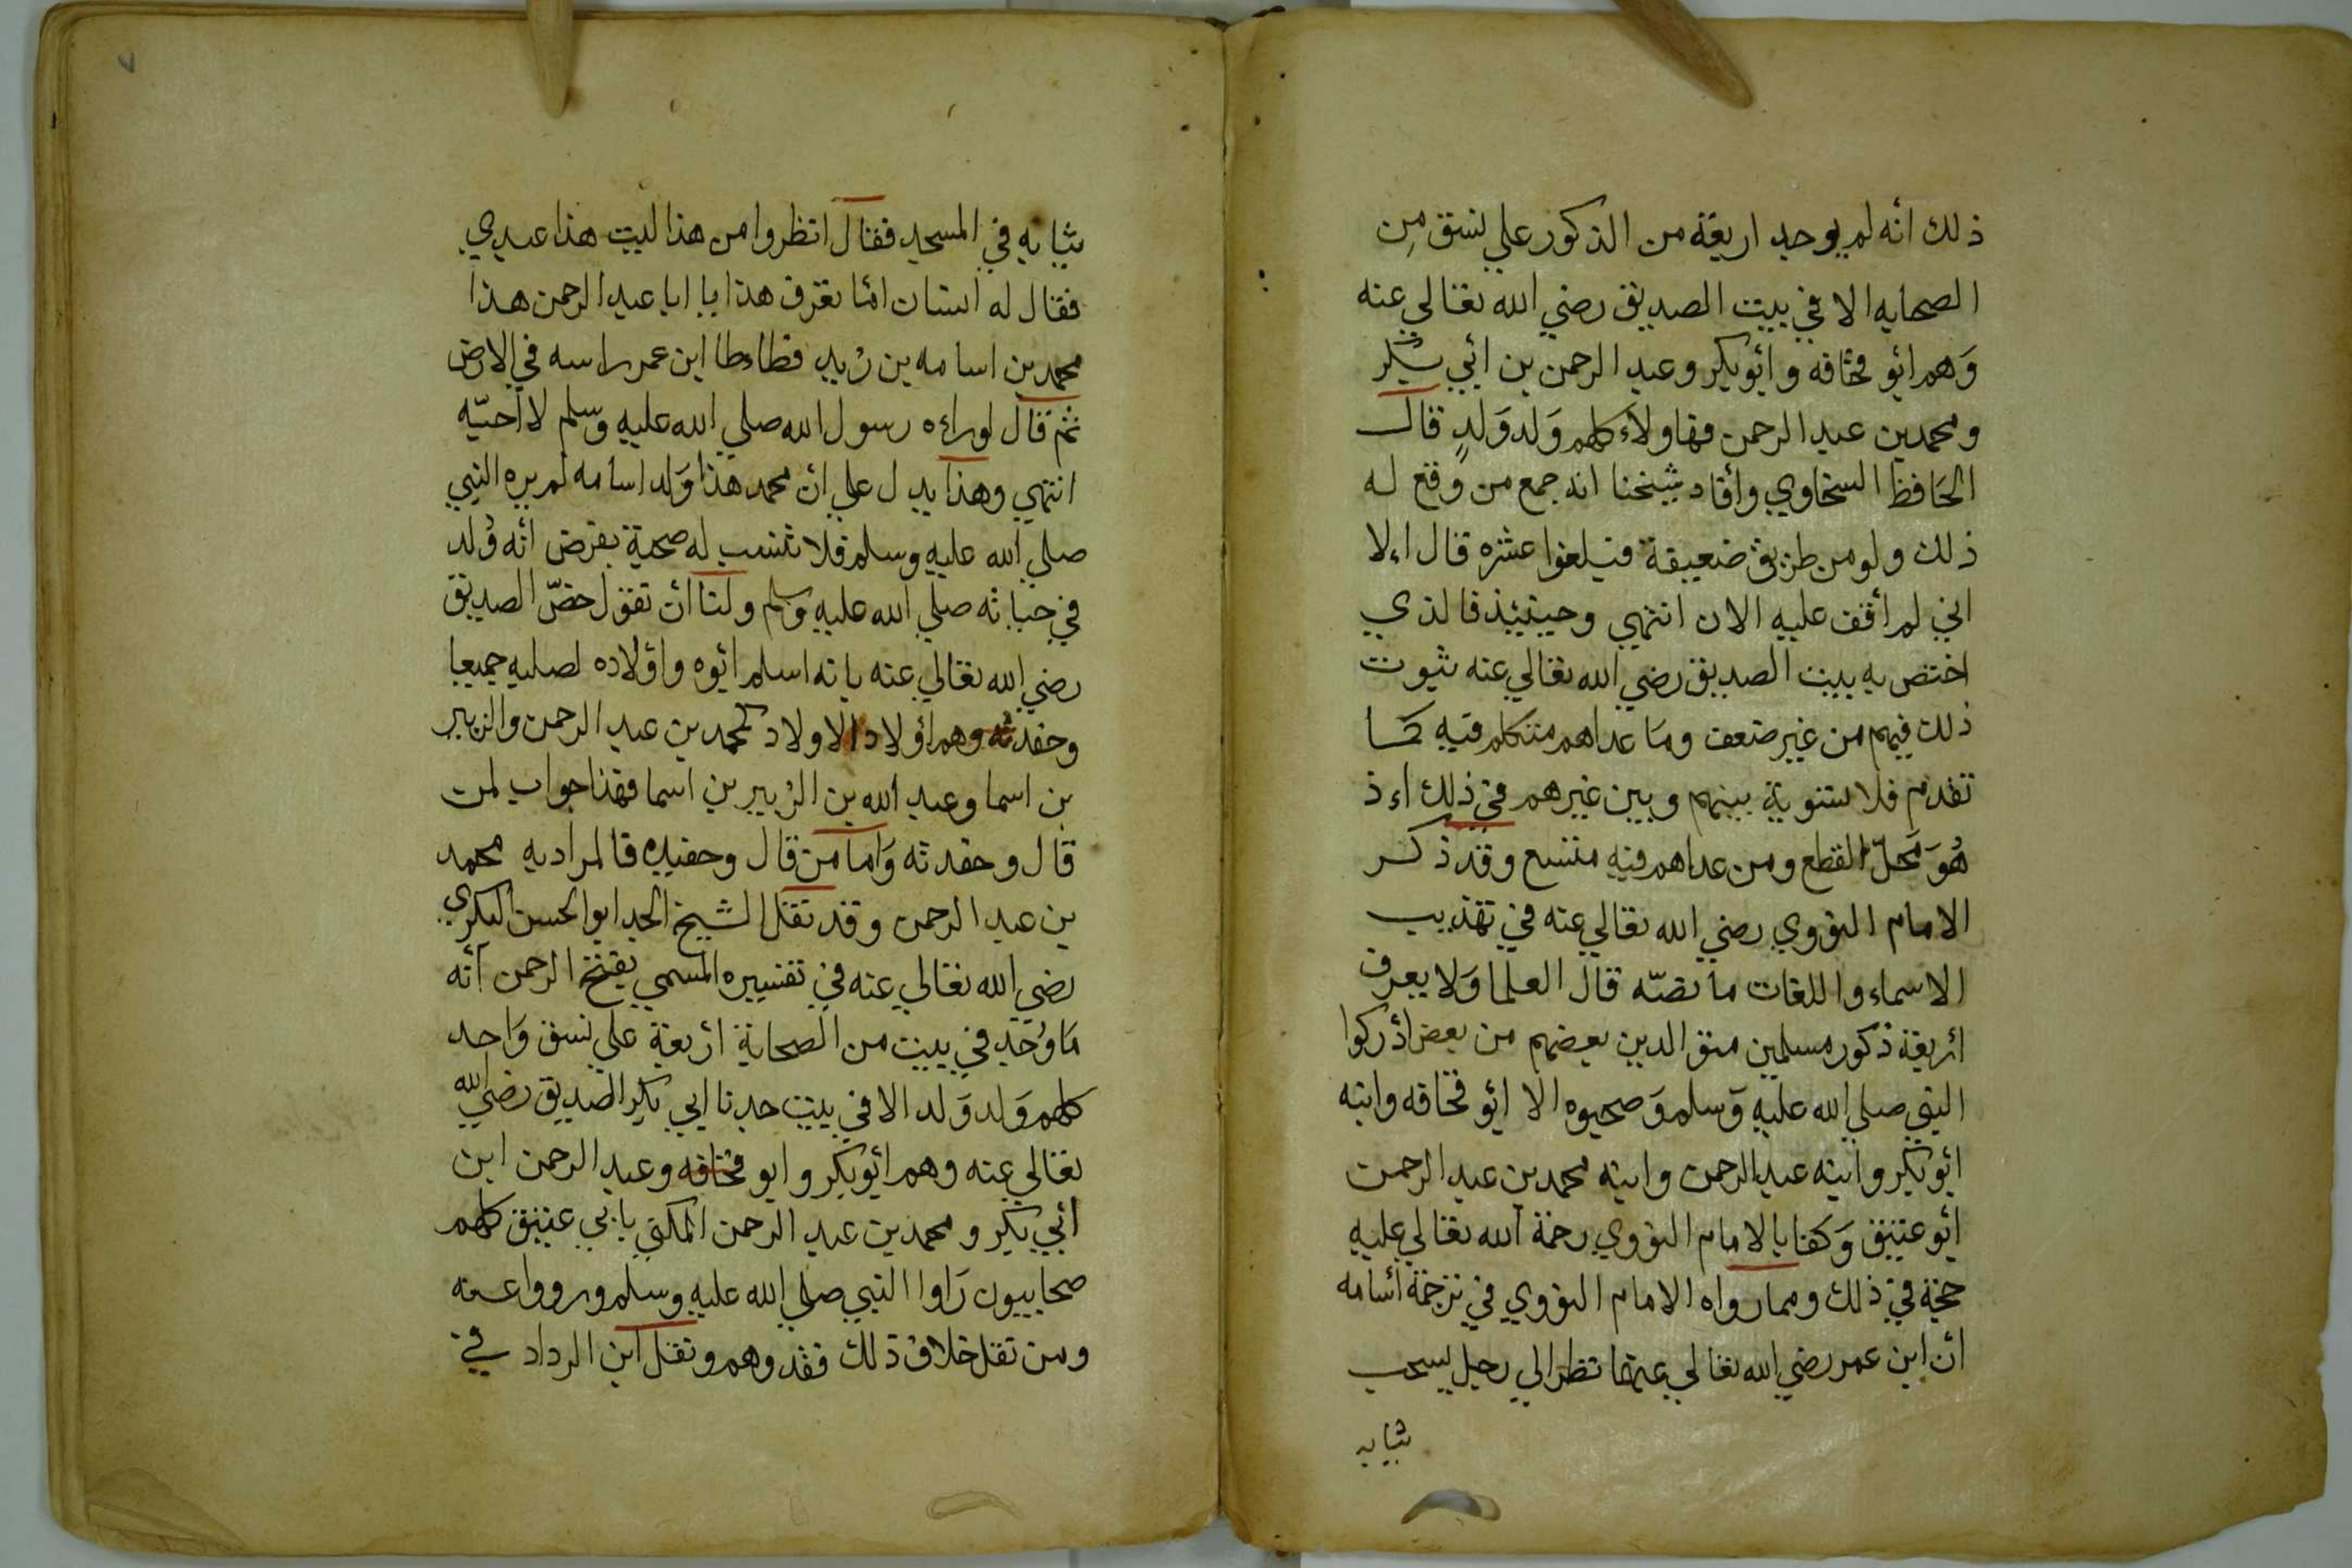 ذلك انه لم يوجد اربعة من الذكور علي نسق مِن
الصحابه الا في بيت الصديق رضي الله تعالي عنه
وَهم ابُو قحافه وابُو بكر وعبد الرحمن بن ابي بكر
ومحمد بن عبد الرحمن فهاولاء كلهم وَلد وَلدٍ قال
الحَافظ السخاوي وأفاد شيخنا انه جمع من وقع له
ذلك ولو من طريق ضعيفة فبلغوا عشره قال اء لا
اني لم أقف عليه الان انتهي وحينئيذ فالذي
اختص به بيت الصديق رضي الله تعالي عنه ثبوت
ذلك فيهم من غير ضعف ومَا عداهم متكلم فيه كما
تقدم فلا تسوية بينهم وبين غيرهم في ذلك اء ذ
هُوَ مَحلّ القطع ومن عداهم فيه متسع وقد ذكر
الامام النووي رضي الله تعالي عنه في تهذيب
الاسماء واللغات ما نصّه قال العلما وَلا يعرف
أربعة ذكور مسلمين متوالدين بعضهم من بعض أدركوا
النبي صلي الله عليه وَسلم وَصحبوه الا ابُو قحافه وابنه
ابُو بكر وابنه عبد الرحمن وابنه محمد بن عبد الرحمن
ابُو عتيق وَكفا بالامام النووي رحمة الله تعالي عليه
حجة في ذلك ومما رواه الامام النووي في ترجمة أسامه
أن ابن عمر رضي الله تعالي عنهما نظر الي رجل يسحب
ثيابه
ثيابه في المسجد فقال انظروا من هذا ليت هذا عبدي
فقال له انسان امَا تعرف هذا يا ابا عبد الرحمن هذا
محمد بن اسامه بن زيد فطاءطا ابن عمر راسه في الارض
ثم قال لو راءه رسول الله صلي الله عليه وسلم لاأحبّه
انتهي وهذا يدل علي ان محمد هذا وَلد اسامه لم يره النبي
صلي الله عليه وسلم فلا تثبت له صحبة بفرض انه وُلد
في حياته صلي الله عليه وسلم ولنا أن نقول خصّ الصديق
رضي الله تعالي عنه بانه اسلم ابُوه واوْلاده لصلبه جميعا
وحفدته وهم أوْلاد الاولاد كمحمد بن عبد الرحمن والزبير
بن اسما وعبد الله بن الزبير بن اسما فهذا جواب لمن
قال وحفدته وَاما من قال وحفيده فالمراد به محمد
بن عبد الرحمن وقد نقل الشيخ الجد ابو الحسن البكري
رضي الله تعالي عنه في تفسيره المسمي بفتح الرحمن أنه
مَا وُجد في بيت من الصحابة أربعة علي نسق وَاحد
كلهم وَلد وَلد الا في بيت جدنا ابي بكر الصديق رضي الله
تعالي عنه وهم ابُو بكر وابو قحافه وعبد الرحمن ابن
أبي بكر ومحمد بن عبد الرحمن المكني بابي عتيق كلهم
صحابيون رَاوا النبي صلي الله عليه وسلم ورووا عنه
ومن نقل خلاف ذلك فقد وهم ونقل ابن الرداد في